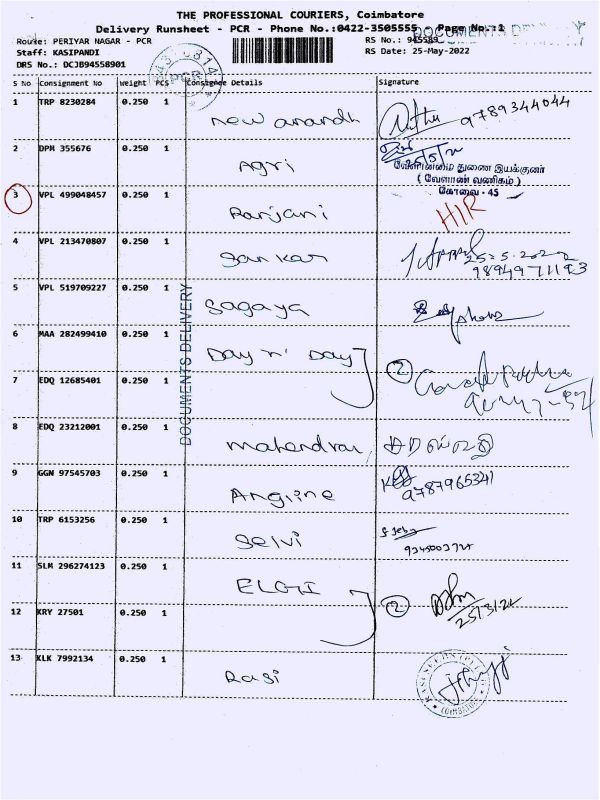 THE PROFESSIONAL COURIERS, Coimbatore
Delivery Runsheet - PCR - Phone No.:0422-3505555 Page No.:1
DOCUMENTS DELIVERY
Route: PERIYAR NAGAR - PCR RS No.: 945589
Staff: KASIPANDI RS Date: 25-May-2022
DRS No.: DCJB94558901
PCR
S No Consignment No Weight PCS Consignee Details Signature
1 TRP 8230284 0.250 1 New anandh 9789344044
2 DPM 355676 0.250 1 Agri
வேளாண்மை துணை இயக்குனர்
( வேளாண் வணிகம் )
கோவை - 45
3 VPL 499048457 0.250 1 Ranjani HIR
4 VPL 213470807 0.250 1 Sankar 25-5-2022
9894971193
5 VPL 519709227 0.250 1 Sagaya
DOCUMENTS DELIVERY
6 MAA 282499410 0.250 1 Day n' Day 2
7 EDQ 12685401 0.250 1
8 EDQ 23212001 0.250 1 Mahendran சரஸ்வதி
9 GGN 97545703 0.250 1 Angline 9787965341
10 TRP 6153256 0.250 1 Selvi
11 SLM 296274123 0.250 1 ELGI 2
12 KRY 27501 0.250 1
13 KLK 7992134 0.250 1 Rasi